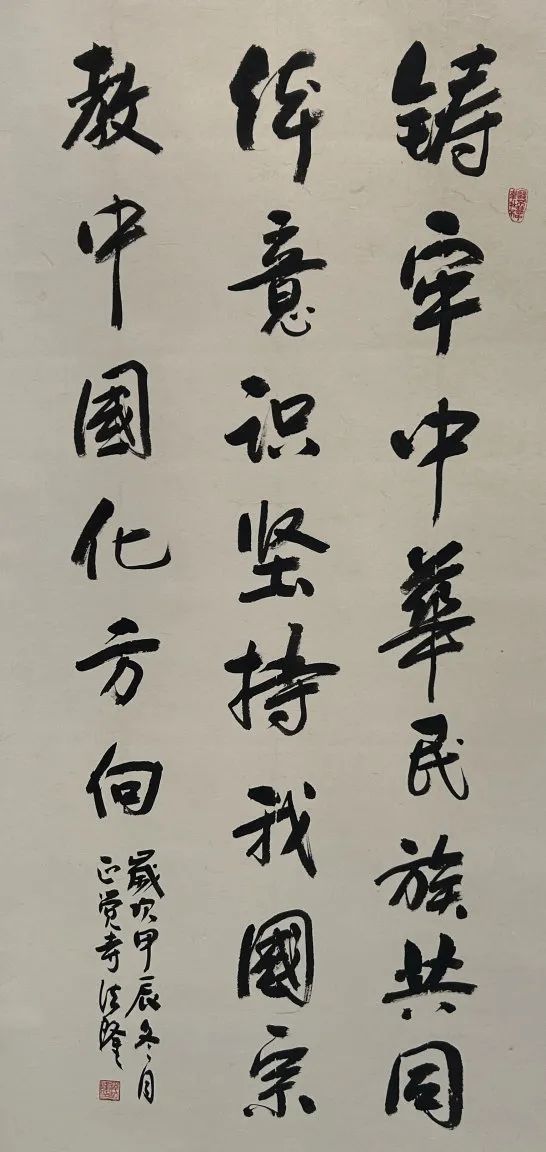 铸牢中華民族共同
体意识坚持我國宗
教中國化方向
歲次甲辰冬月
正觉寺法隆